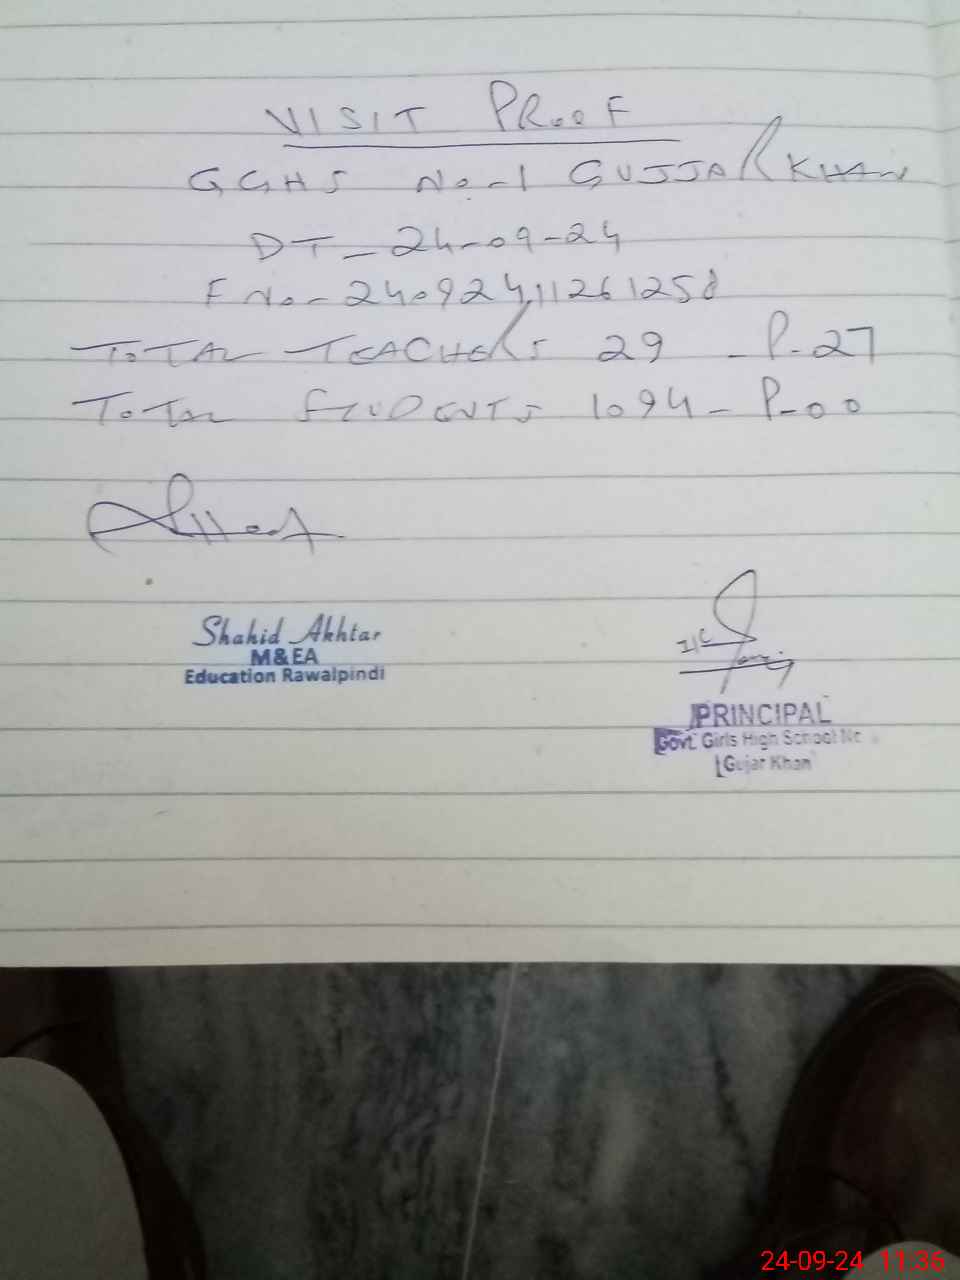 VISIT PROOF
GGHS No-1 GUJJAR KHAN
DT - 24-09-24
F No- 24092411261258
TOTAL TEACHERS 29 - P-27
TOTAL STUDENTS 1094 - P-00
Shahid Akhtar
M&EA
Education Rawalpindi
I/C
PRINCIPAL
Govt. Girls High School No
1 Gujar Khan
24-09-24 11:36